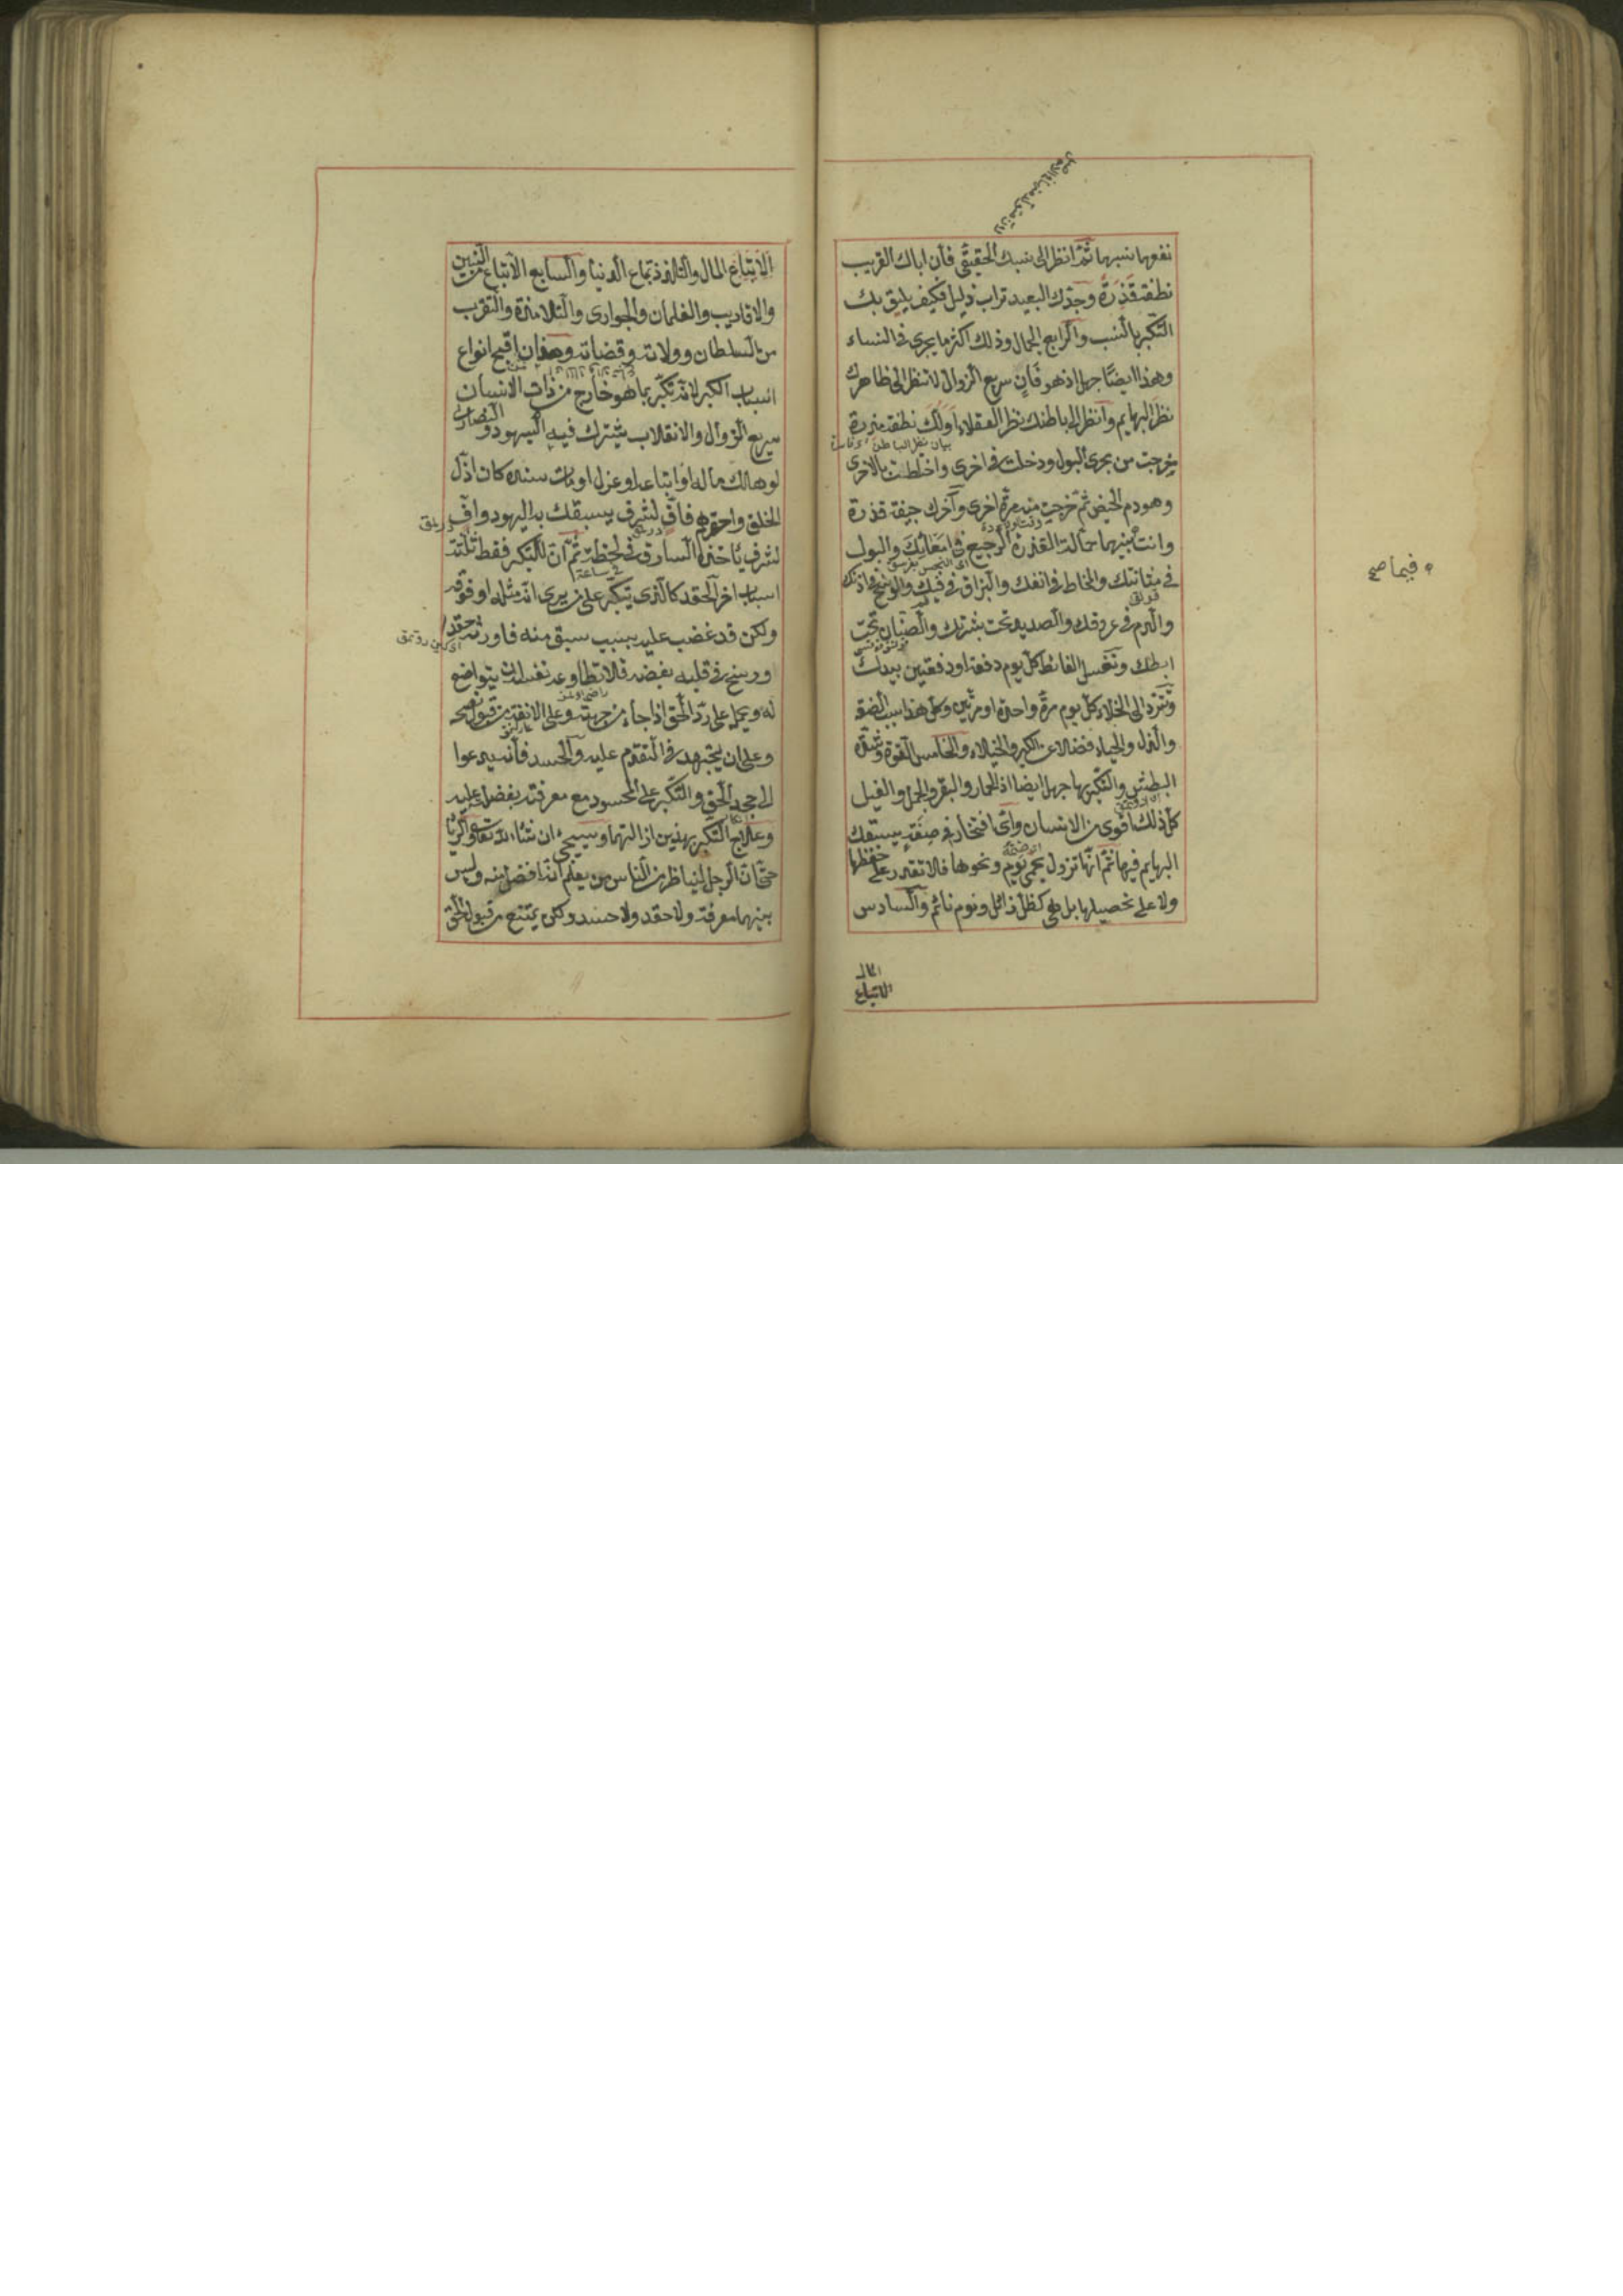 نفعهما نسبهما ثم انظر الى نسبك الحقيقي فان اباك القريب
نطفة قذرة وجدك البعيد تراب ذليل فكيف يليق بك
التكبر بالنسب والرابع الجمال وذلك اكثر ما يجرى فى النساء
وهذا ايضا جهل اذ هو فان سريع الزوال لا تنظر الى ظاهرك
نظر البهايم وانظر الى باطنك نظر العقلاء اولك نطفة مذرة
بيان نظر الباطن
خرجت من مجرى البول ودخلت فى اخرى واختلطت بالاخرى
وهو دم الحيض ثم خرجت منه مرة اخرى وآخرك جيفة قذرة
وانت بينهما حمالة القذرة الرجيع فى امعائك والبول
فى مثانتك والمخاط فى انفك والبزاق فى فيك والوسخ فى اذنك
والدم فى عروقك والصديد تحت بشرتك والصنان تحت
ابطك وتغسل الغائط كل يوم دفعة او دفعتين بيدك
وتتردد الى الخلاء كل يوم مرة واحدة او مرتين وكل هذا سبب الضعة
والذل والحياء فضلا عن الكبر والخيلاء والخامس القوة وشدة
البطش والتكبر بها جهل ايضا اذ الحمار والبقر والجمل والفيل
كل ذلك اقوى من الانسان واى افتخار فى صفة يسبقك
البهايم فيها ثم انها تزول بحمى يوم ونحوها فلا تقدر على حفظها
ولا على تحصيلها بل هى كظل زائل ونوم نائم والسادس
المال
الاتباع
فيما صح
الاتباع المال والتلذذ بمتاع الدنيا والسابع الاتباع من البنين
والاقاريب والغلمان والجوارى والتلامذة والتقرب
من السلطان وولاته وقضاته وهذان اقبح انواع
اسباب الكبر لانه تكبر بما هو خارج من ذات الانسان
سريع الزوال والانقلاب يشترك فيه اليهود والنصارى
لو هلك ماله او اتباعه او عزل او مات سنده كان اذل
الخلق واحقرهم فاف لشرف يسبقك به اليهود واف
لشرف ياخذه السارق فى لحظة ثم ان للتكبر فقط ثلثة
فى ساعة
اسباب اخر الحقد كالذى يتكبر على من يرى انه مثله او فوقه
ولكن قد غضب عليه بسبب سبق منه فاورثه حقدا
ورسخ فى قلبه بغضه فلا تطاوعه نفسه ان يتواضع
له ويحمله على رد الحق اذا جاء من جهته وعلى الانفة من قبول نصحه
وعلى ان يجتهد فى التقدم عليه والحسد فانه يدعوا
الى جحد الحق والتكبر على المحسود مع معرفته بفضل عليه
وعلاج التكبر بهذين ازالتهما وسيجئ ان شاء الله تعالى والرياء
حتى ان الرجل ليناظر من الناس من يعلم انه افضل منه وليس
بينهما معرفة ولا حقد ولا حسد ولكن يمتنع من قبول الحق